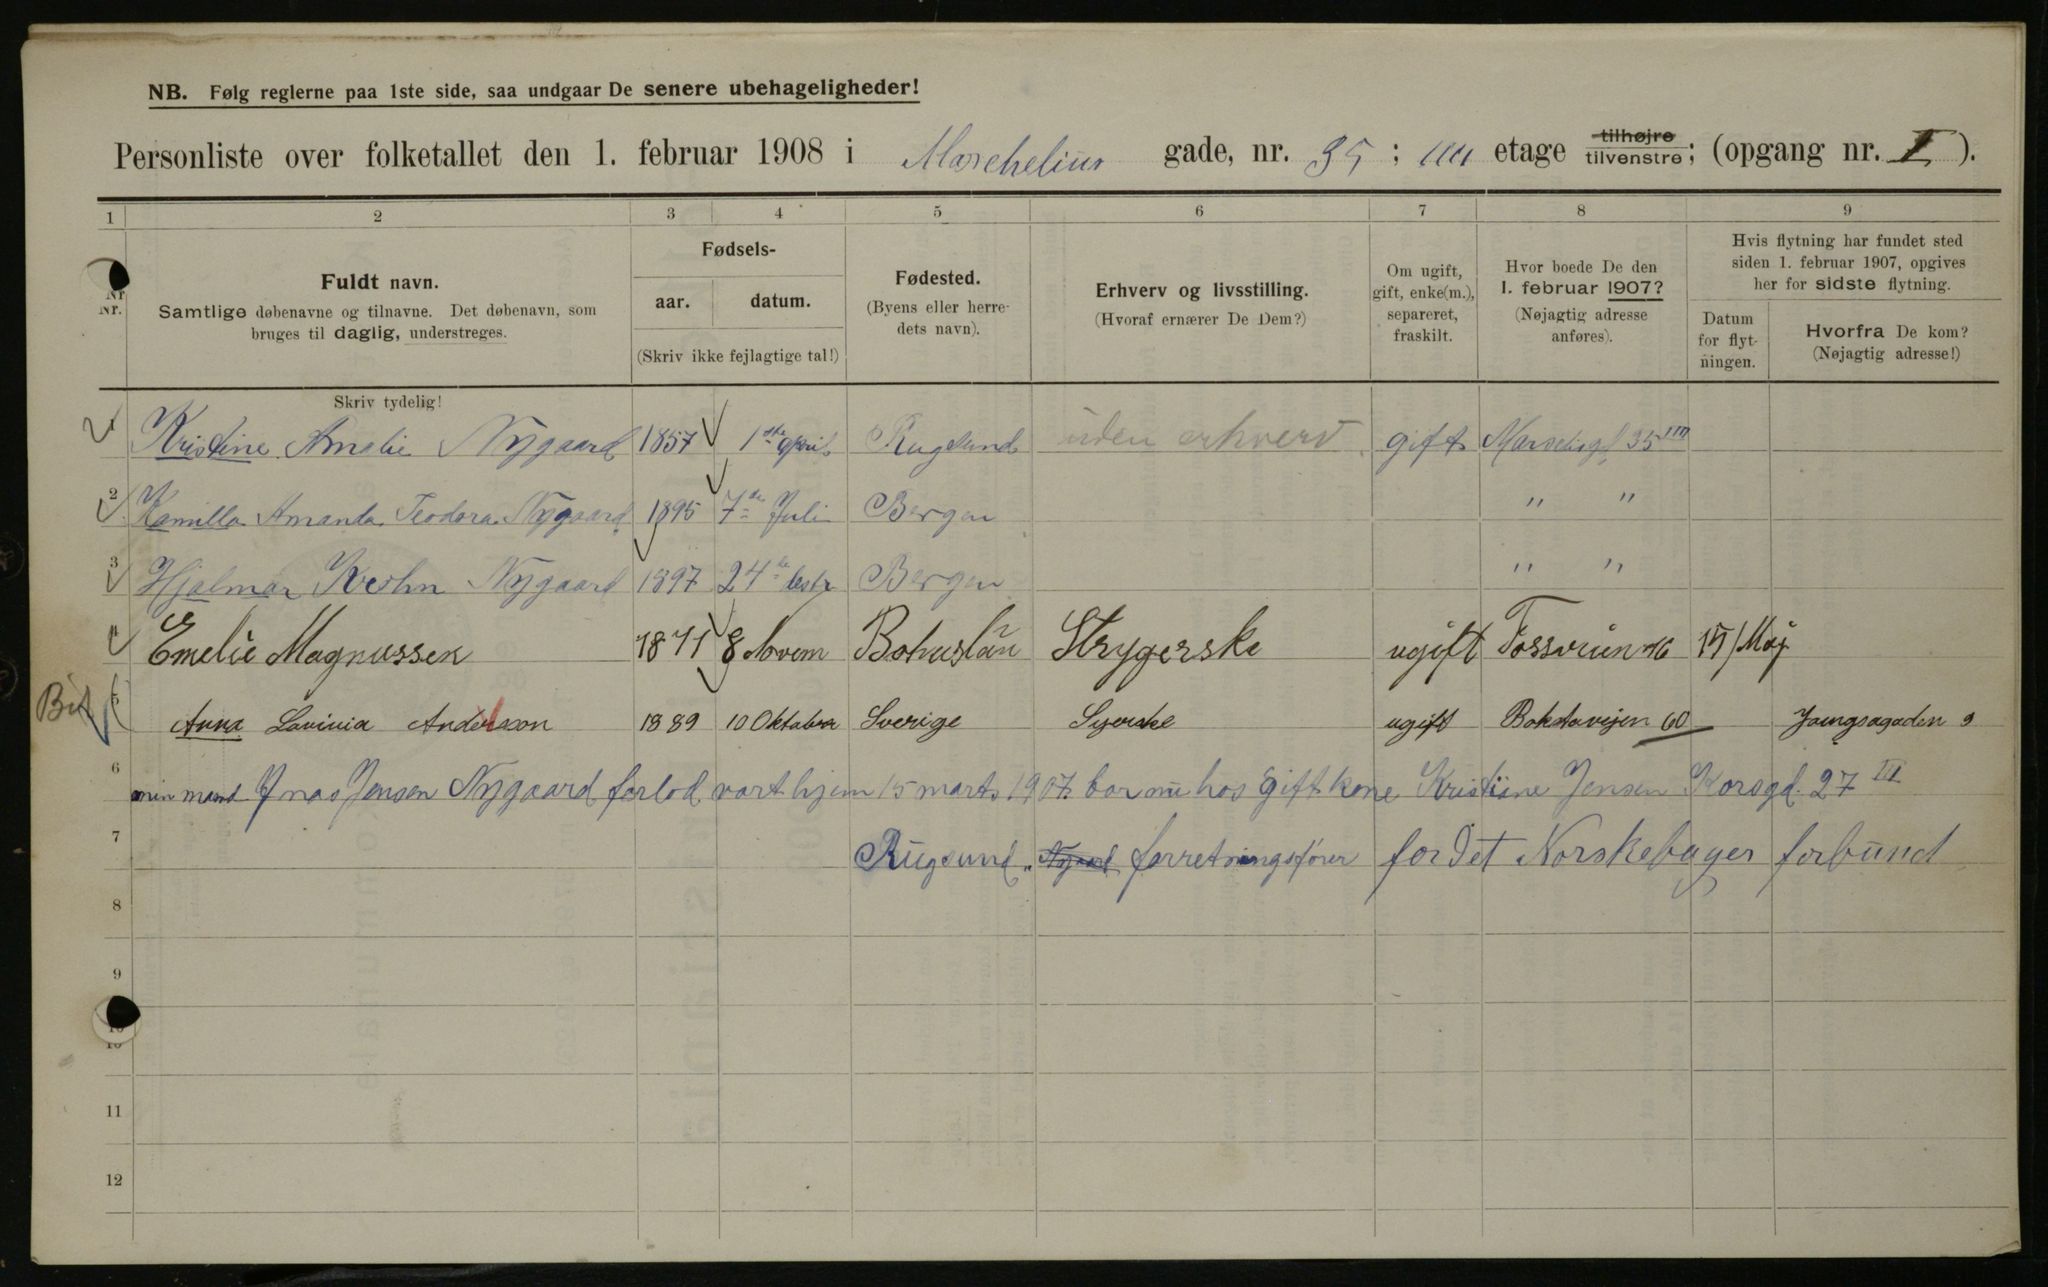 NB. Følg reglerne paa 1ste side, saa undgaar De senere ubehageligheder!
Personliste over folketallet den 1. februar 1908 i Marchelius gade, nr. 35; IIII etage tilhøjre tilvenstre; (opgang nr. I).
1 2 3 4 5 6 7 8 9
Nr Nr.
Fuldt navn.
Samtlige døbenavne og tilnavne. Det døbenavn, som
bruges til daglig, understreges.
Skriv tydelig!
Fødsels-
aar. datum.
(Skriv ikke fejlagtige tal!)
Fødested.
(Byens eller herre-
dets navn).
Erhverv og livsstilling.
(Hvoraf ernærer De Dem?)
Om ugift,
gift, enke(m.),
separeret,
fraskilt.
Hvor boede De den
1. februar 1907?
(Nøjagtig adresse
anføres).
Hvis flytning har fundet sted
siden 1. februar 1907, opgives
her for sidste flytning.
Datum
for flyt-
ningen.
Hvorfra De kom?
(Nøjagtig adresse!)
1 Kristine Amalie Nygaard 1857 1ste April Rugsund uden erhverv gift Marseligd 35 III
2 Kamilla Amanda Teodora Nygaard 1895 7de Juli Bergen " "
3 Hjalmar Krohn Nygaard 1897 24de Bergen " "
4 Emelie Magnussen 1871 8 Novem Bohuslän Strygerske ugift 15/Maj
5 Anna Lavinia Andersson 1889 10 Oktober Sverige Syerske ugift 60 Youngsgaden 9
6 min mand Jnas Jensen Nygaard forlod vort hjem 15 marts 1907. bor nu hos gift kone Kristiane Jensen Korsgd. 27 III
7 Rugsund. Nygaard forretningsfører for Det Norskebager forbund
8
9
10
11
12